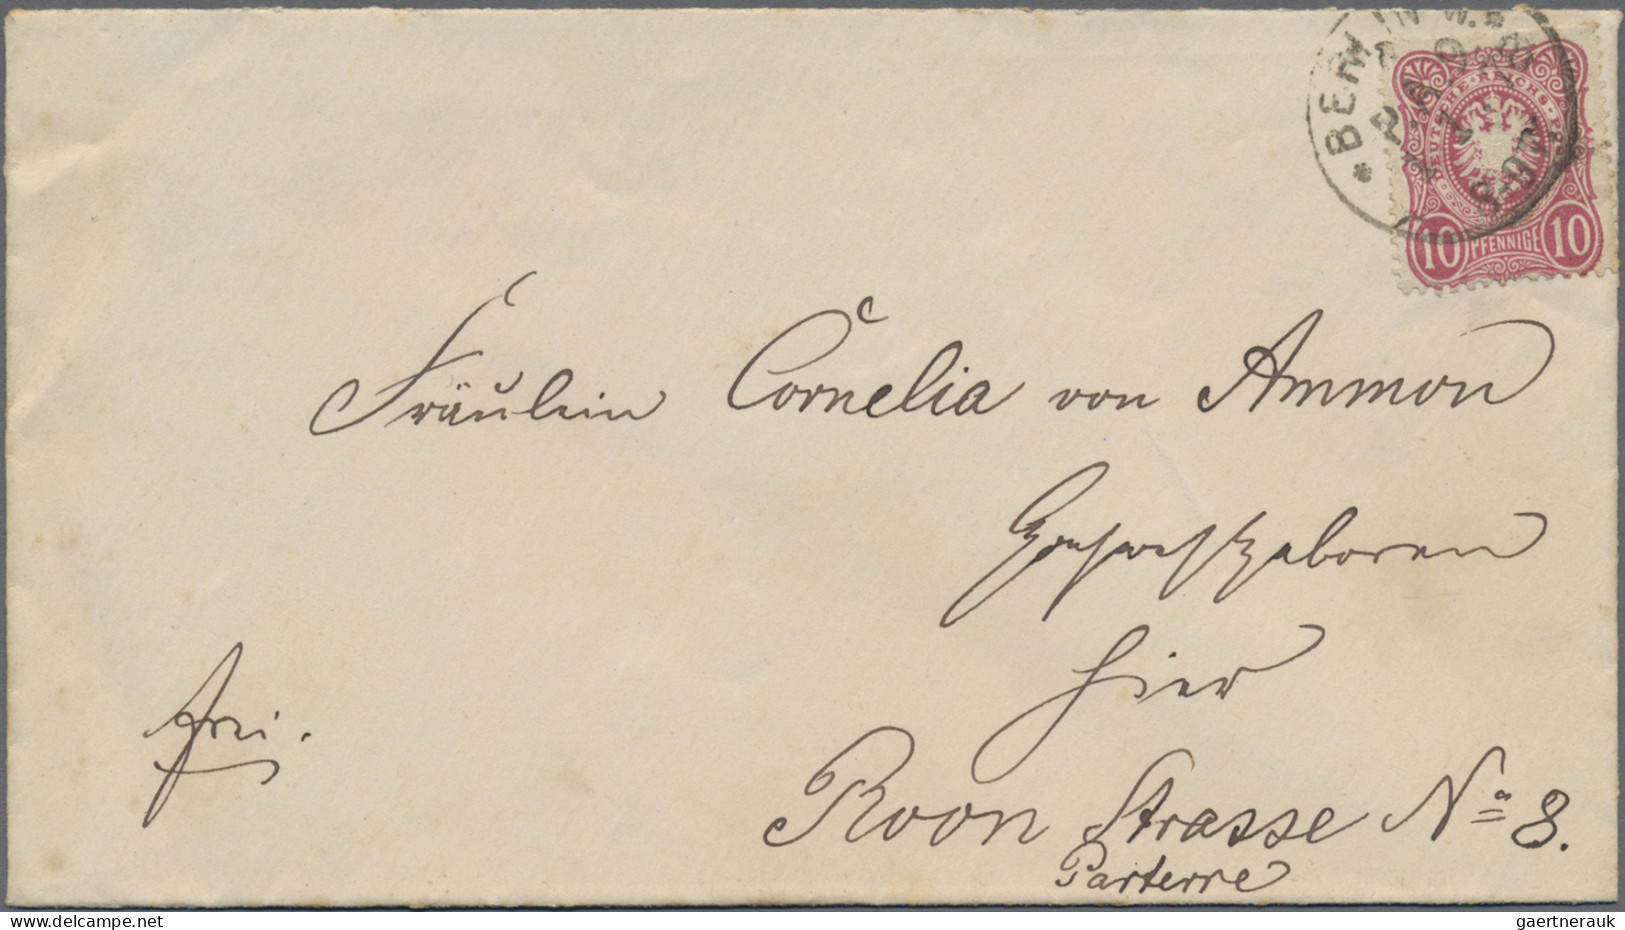 BERLIN W.
DEUTSCHE REICHS-POST
10 PFENNIGE 10
Fräulein Cornelia von Ammon
Hochwohlgeboren
hier
frei.
Roon Strasse No 8.
Parterre
delcampe.net
gaertnerauk